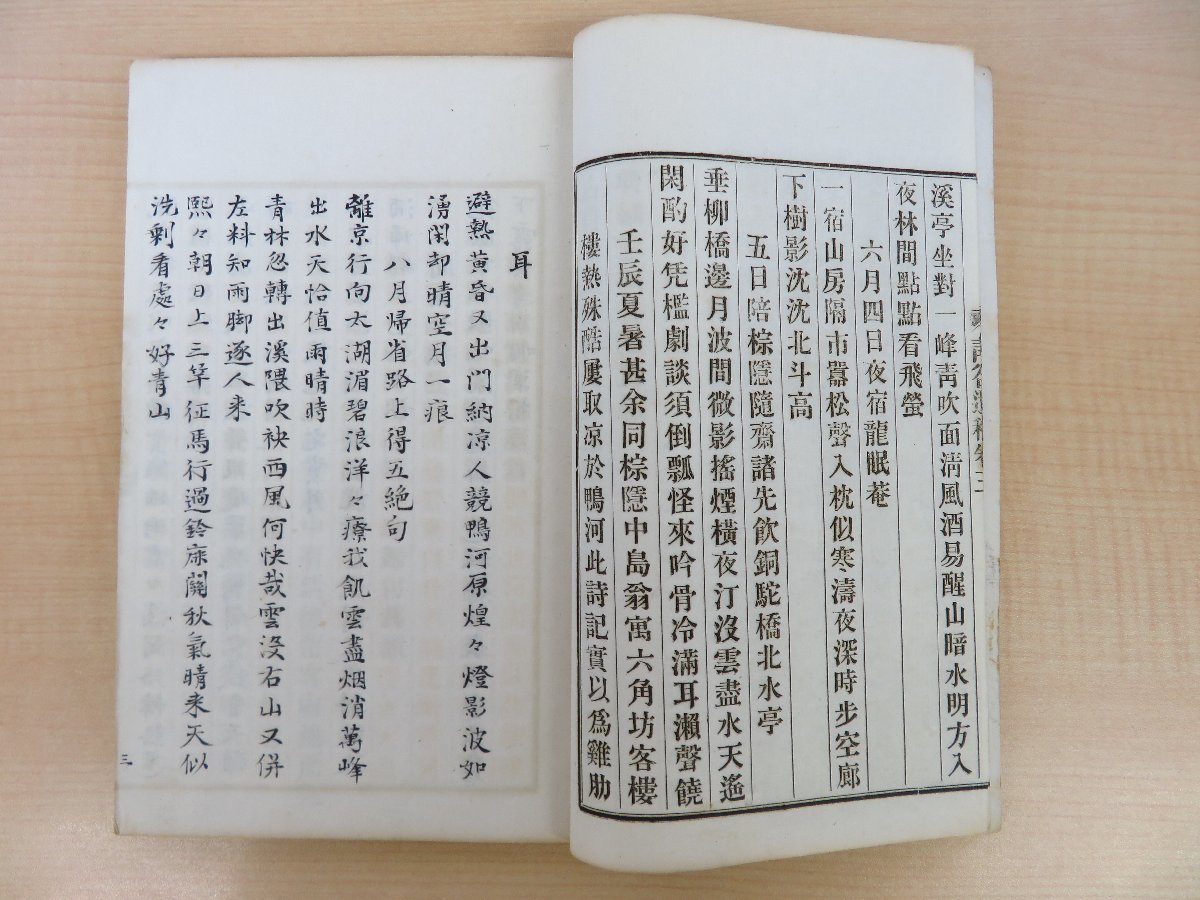 溪亭坐對一峰靑吹面淸風酒易醒山暗水明方入
夜林間點點看飛螢
六月四日夜宿龍眠菴
一宿山房隔市囂松聲入枕似寒濤夜深時步空廊
下樹影沈沈北斗高
五日陪棕隱隨齋諸先飮銅駝橋北水亭
垂柳橋邊月波間微影搖煙橫夜汀沒雲盡水天遙
閑酌好凭檻劇談須倒瓢怪來吟骨冷滿耳瀨聲饒
壬辰夏暑甚余同棕隱中島翁寓六角坊客樓
樓熱殊酷屢取凉於鴨河此詩記實以爲雞肋
耳
避熱黃昏又出門納凉人競鴨河原煌々燈影波如
湧閑却晴空月一痕
八月帰省路上得五絶句
離京行向太湖湄碧浪洋々療我飢雲盡烟消萬峰
出水天恰值雨晴時
青林忽轉出溪隈吹袂西風何快哉雲沒右山又併
左料知雨脚逐人来
熙々朝日上三竿征馬行過鈴床關秋氣晴来天似
洗剰看處々好青山
三